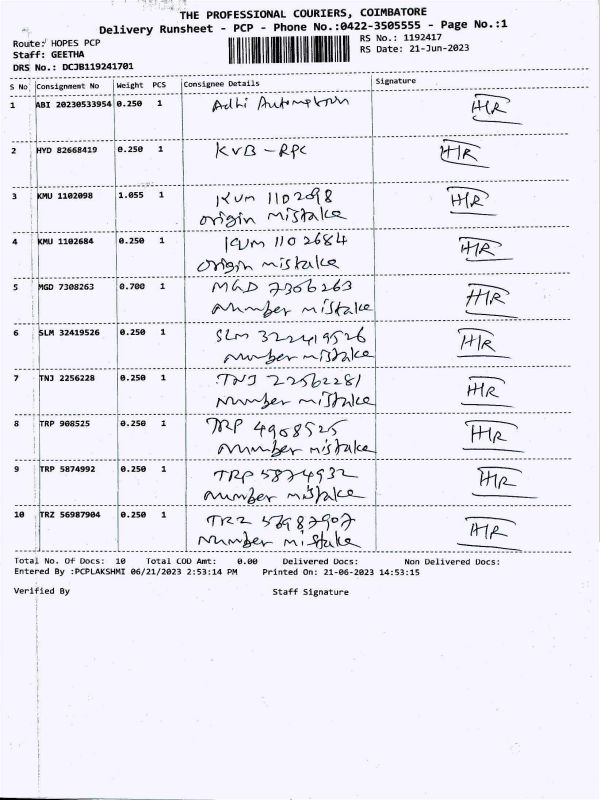 THE PROFESSIONAL COURIERS, COIMBATORE
Delivery Runsheet - PCP - Phone No.:0422-3505555 - Page No.:1
Route: HOPES PCP
RS No.: 1192417
Staff: GEETHA
RS Date: 21-Jun-2023
DRS No.: DCJB119241701
S No Consignment No Weight PCS Consignee Details Signature
1 ABI 20230533954 0.250 1 Adhi Automation HR
2 HYD 82668419 0.250 1 KVB - RPC HR
3 KMU 1102098 1.055 1 KUM 1102098 HR
origin mistake
4 KMU 1102684 0.250 1 KUM 1102684 HR
origin mistake
5 MGD 7308263 0.700 1 MGD 7306263 HR
number mistake
6 SLM 32419526 0.250 1 SLM 322419526 HR
number mistake
7 TNJ 2256228 0.250 1 TNJ 22562281 HR
number mistake
8 TRP 908525 0.250 1 TRP 4908525 HR
number mistake
9 TRP 5874992 0.250 1 TRP 5874932 HR
number mistake
10 TRZ 56987904 0.250 1 TRZ 56987907 HR
number mistake
Total No. Of Docs: 10 Total COD Amt: 0.00 Delivered Docs: Non Delivered Docs:
Entered By :PCPLAKSHMI 06/21/2023 2:53:14 PM Printed On: 21-06-2023 14:53:15
Verified By Staff Signature